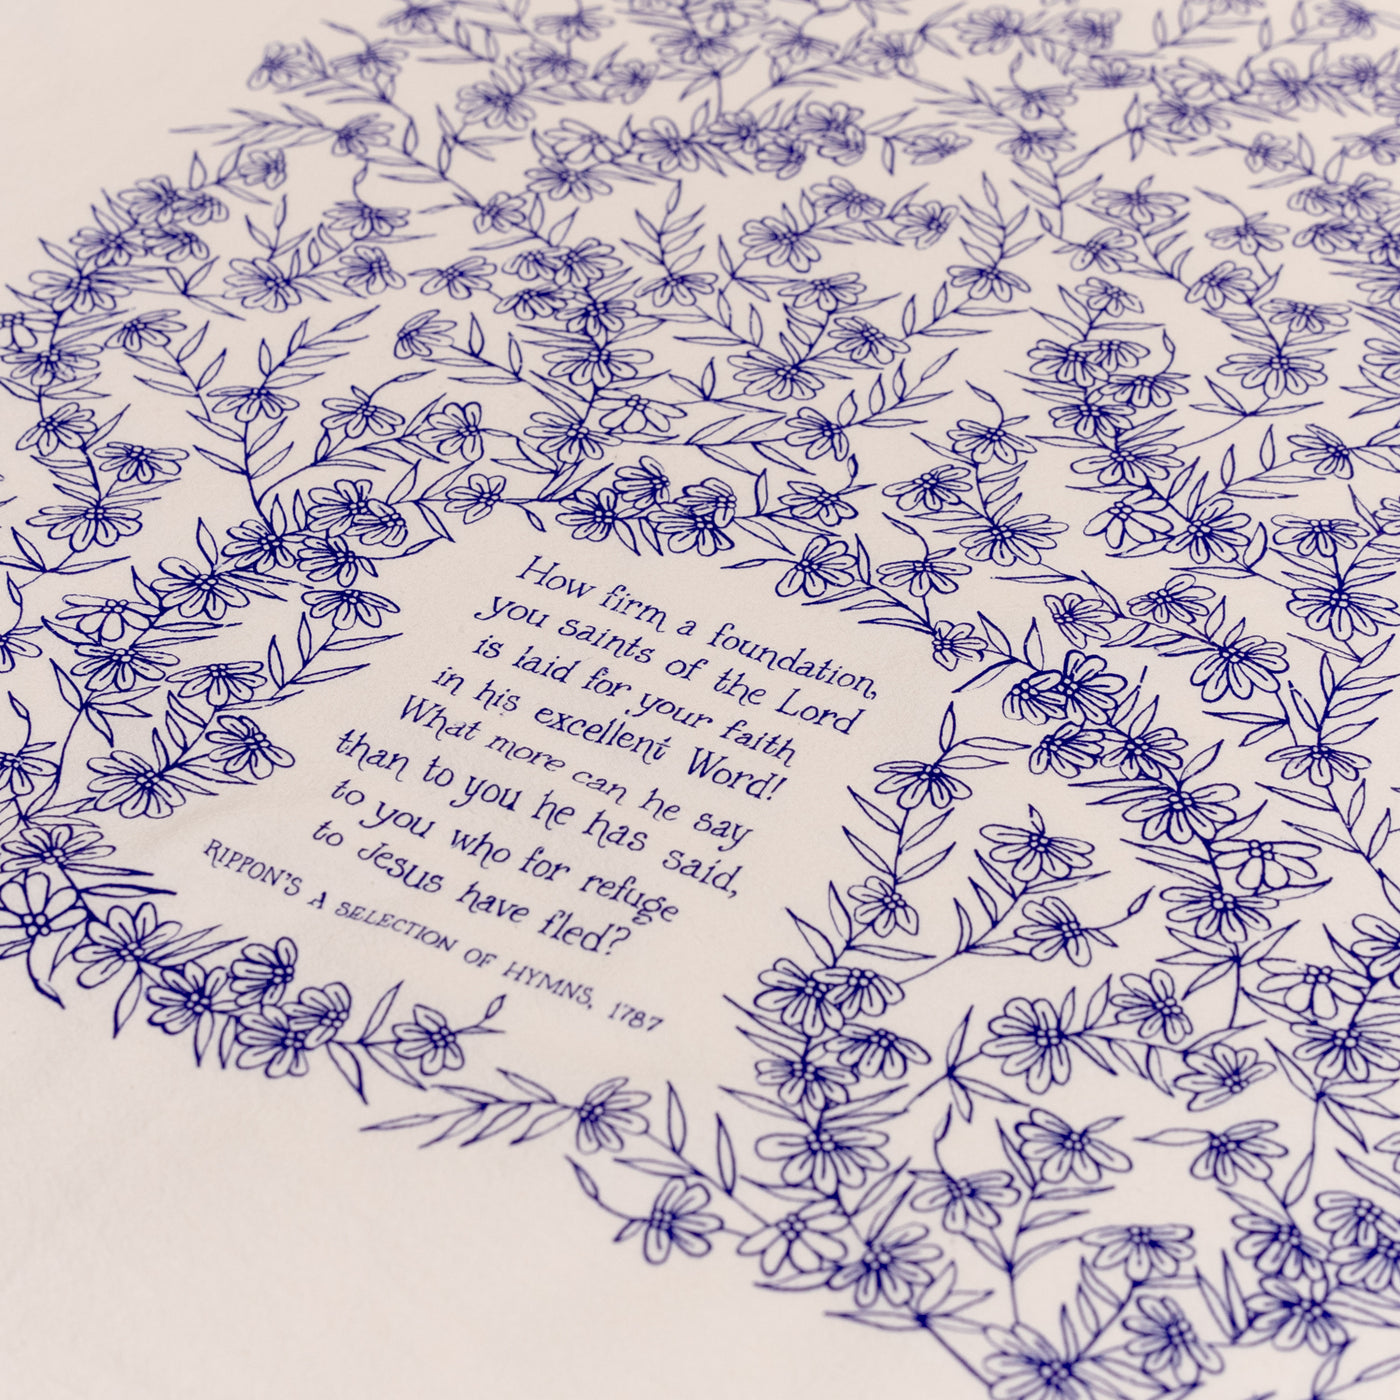 How firm a foundation,
you saints of the Lord
is laid for your faith
in his excellent Word!
What more can he say
than to you he has said,
to you who for refuge
to Jesus have fled?
RIPPON'S A SELECTION OF HYMNS, 1787